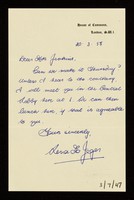 House of Commons,
London, S.W.1
20. 3. 58
Dear Mrs Jenkins
Can we make it Thursday?
Unless I hear to the contrary
I will meet you in the Central
Lobby here at 1. We can then
have here, if that is agreeable
to you.
Yours sincerely,
Lena M. Jeger
3/7/47